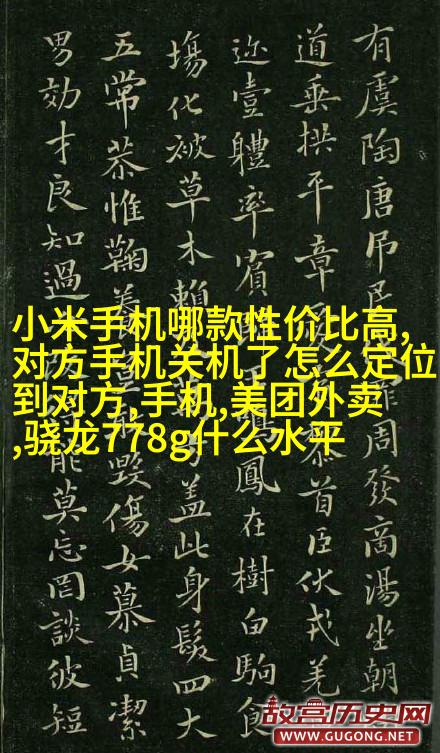 有虞陶唐吊民罪周發商湯坐朝
道垂拱平章首臣伏戎羌
迩壹體率賓鳳在樹白駒食
塲化被草木賴方盖此身髮四大
五常恭惟鞠養毀傷女慕貞潔
男効才良知過能莫忘罔談彼短
小米手机哪款性价比高,
对方手机关机了怎么定位
到对方,手机,美团外卖
,骁龙778g什么水平
故宫历史网
WWW.GUGONG.NET